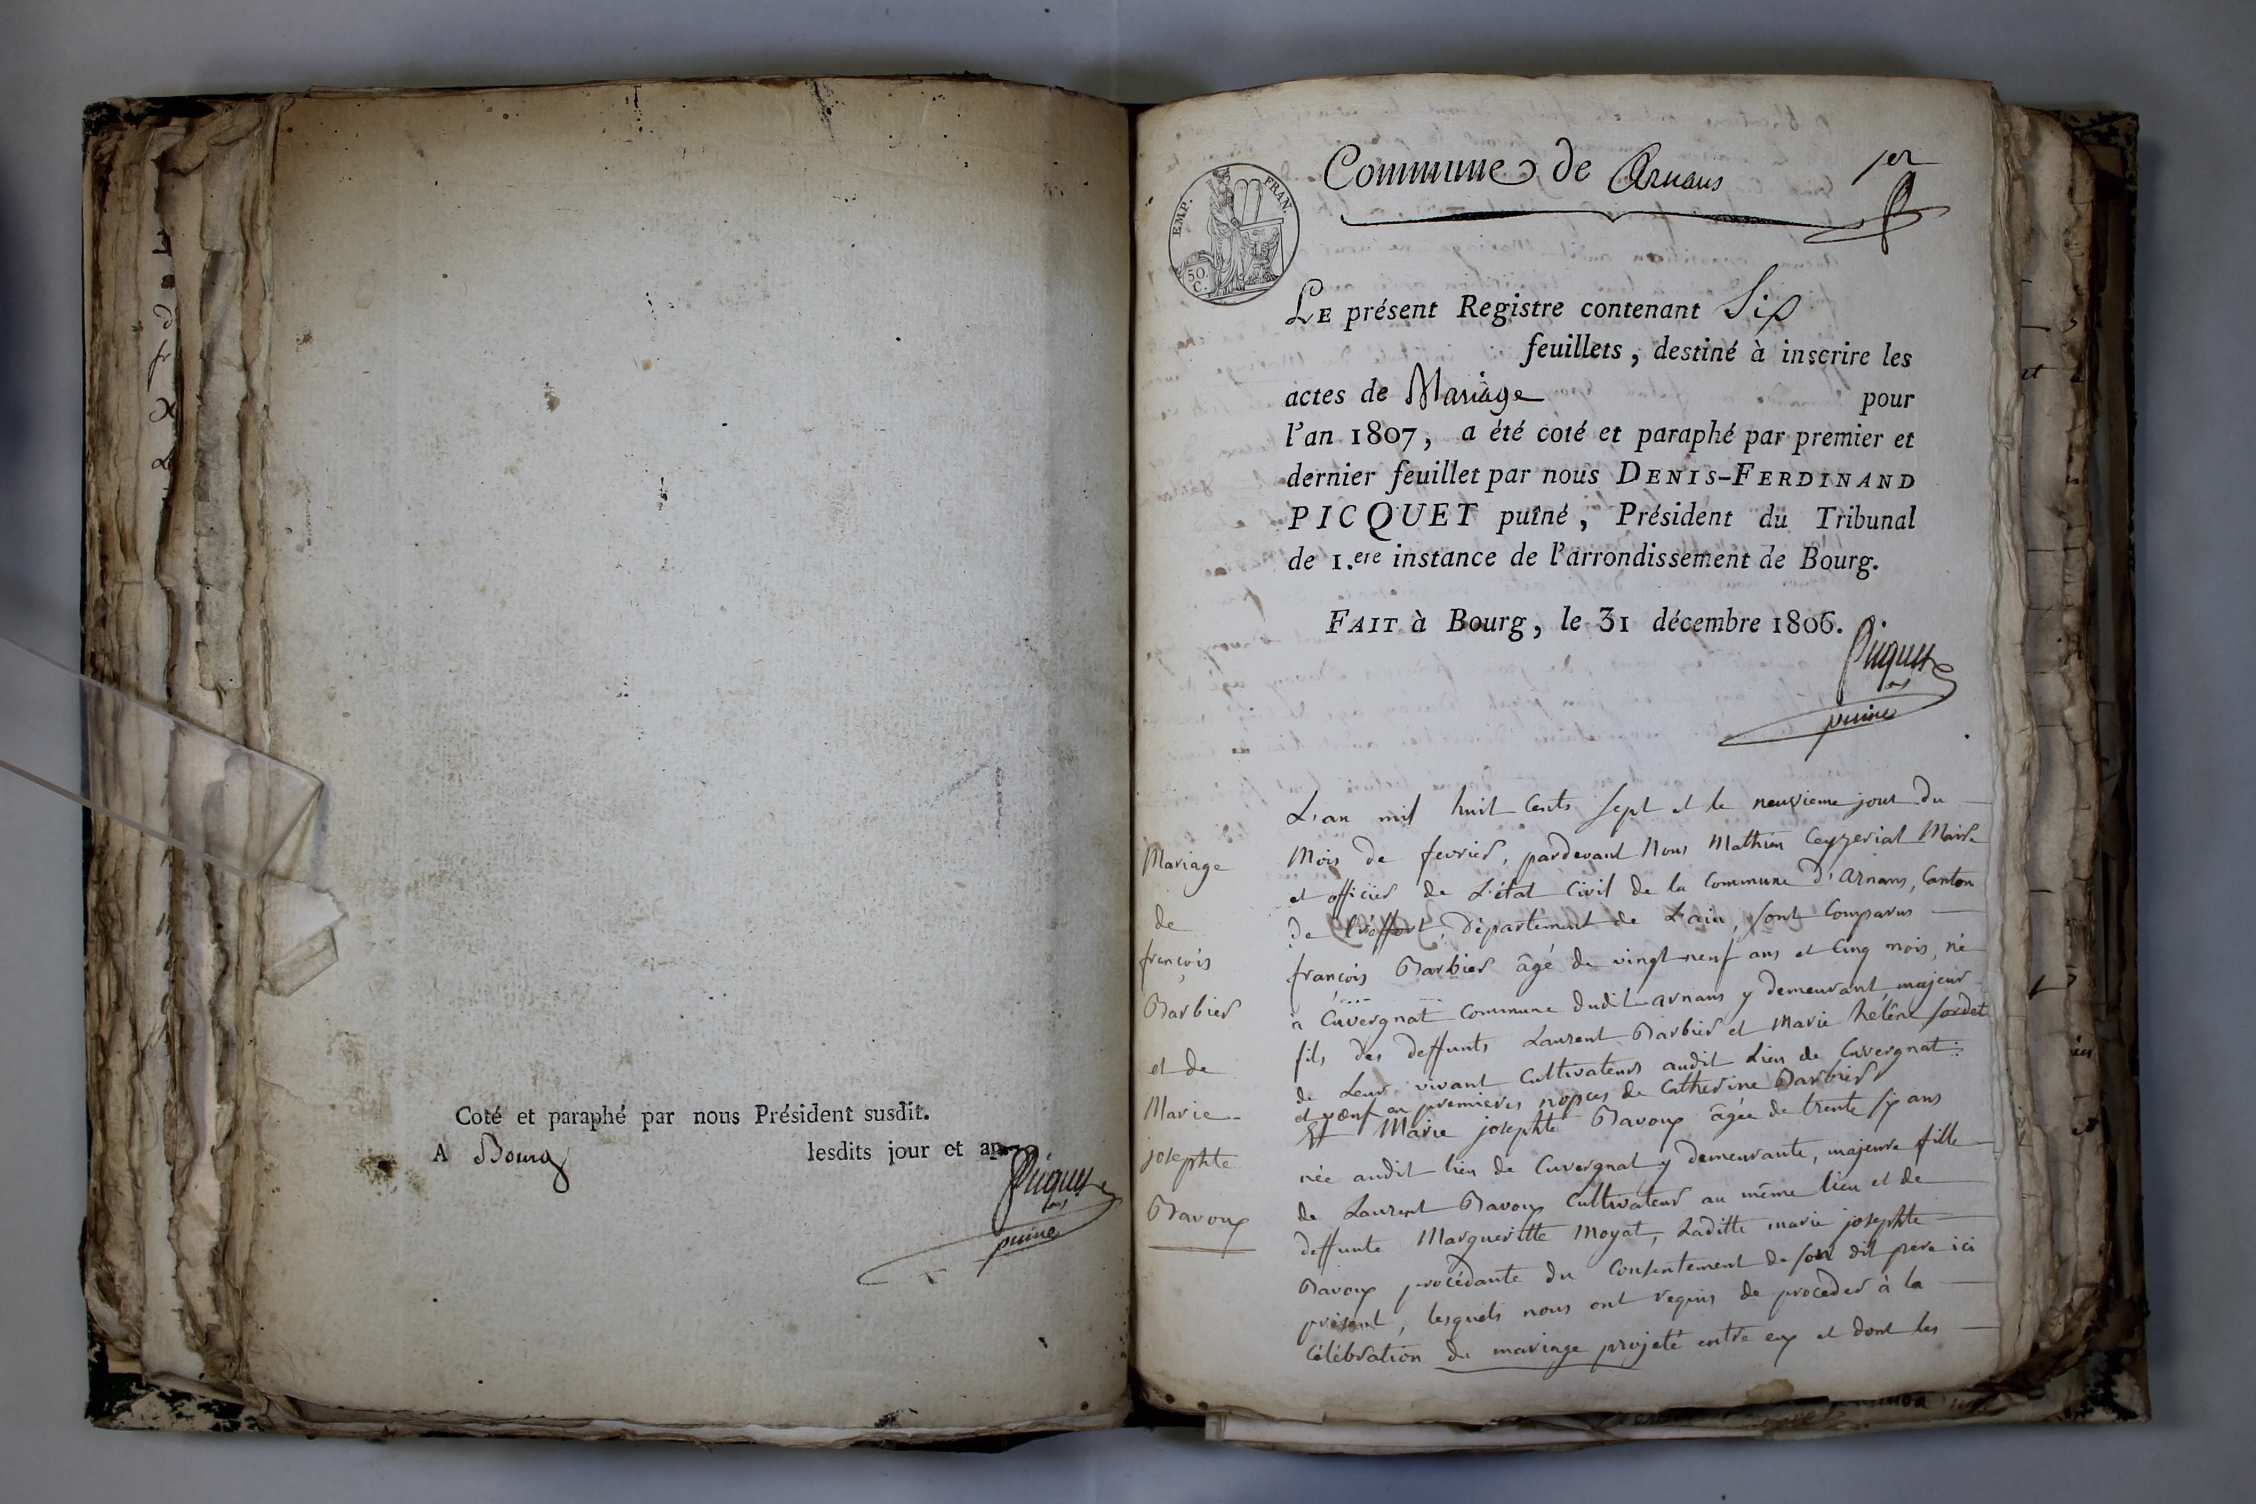 Coté et paraphé par nous Président susdit.
A Bourg lesdits jour et an
Picquet
puiné
Commune de Arnans 1er
EMP. FRAN.
50. C.
LE présent Registre contenant Six
feuillets, destiné à inscrire les
actes de Mariage pour
l'an 1807, a été coté et paraphé par premier et
dernier feuillet par nous DENIS-FERDINAND
PICQUET puîné, Président du Tribunal
de 1.ere instance de l'arrondissement de Bourg.
FAIT à Bourg, le 31 décembre 1806.
Picquet
puiné
Mariage
de
françois
Barbier
et de
Marie
josephte
Bavoux
L'an mil huit Cents Sept et le neuvieme jour du
Mois de fevrier, pardevant Nous Mathieu Ceyzeriat Maire
et officier de L'état Civil de la Commune D'Arnans, Canton
De tréffort, Département de L'ain, Sont Comparus
françois Barbier âgé de vingt neuf ans et Cinq mois, né
à Cuvergnat Commune dudit arnans y demeurant majeur
fils des deffunts Laurent Barbier et Marie hélène Sordet
de Leur vivant Cultivateurs audit Lieu de Cuvergnat:
et vœuf en premieres nopces de Catherine Barbier
Et Marie josephte Bavoux âgée de trente Six ans
née audit lieu de Cuvergnat y demeurante, majeure fille
de Laurent Bavoux Cultivateur au même lieu et de
deffunte Margueritte Moyat, Laditte marie josephte
Bavoux procédante du Consentement de Son dit pere ici
présent, lesquels nous ont requis de proceder à la
Célébration du mariage projeté entre eux et dont les